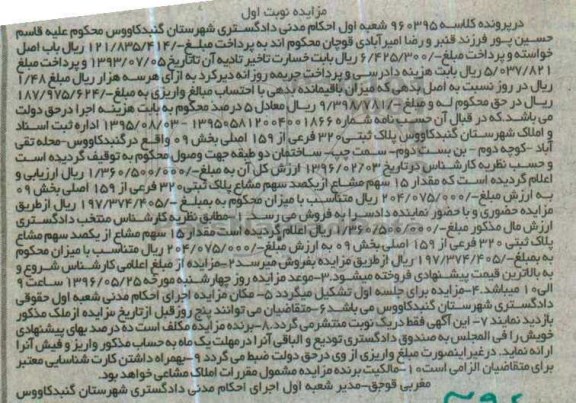 مزایده نوبت اول
درپرونده کلاسه ۹۶۰۳۹۵ شعبه اول احکام مدنی دادگستری شهرستان گنبدکاووس محکوم علیه قاسم
حسین پور فرزند قنبر و رضا امیرآبادی قوچان محکوم اند به پرداخت مبلغ-/۱۲۱/۸۳۵/۴۱۴ ریال باب اصل
خواسته و پرداخت مبلغ-/۶/۴۲۵/۳۰۰ ریال بابت خسارت تاخیر تادیه آن تاتاریخ ۱۳۹۳/۰۷/۰۵ و پرداخت مبلغ
۵/۰۳۷/۸۲۱ ریال بابت هزینه دادرسی و پرداخت جریمه روزانه دیرکرد به ازای هرسه هزار ریال مبلغ ۱/۴۸
ریال در روز نسبت به اصل بدهی که میزان باقیمانده بدهی با احتساب مبالغ واریزی به مبلغ-/۱۸۷/۹۷۵/۶۲۴
ریال در حق محکوم له و مبلغ-/۹/۳۹۸/۷۸۱ ریال معادل ۵ درصد محکوم به بابت هزینه اجرا درحق دولت
می باشد.که در قبال آن حسب نامه شماره ۱۳۹۵۰۵۸۱۲۰۰۴۰۰۱۸۶۶-۱۳۹۵/۰۸/۰۳ اداره ثبت اسناد
و املاک شهرستان گنبدکاووس پلاک ثبتی ۳۲۰ فرعی از ۱۵۹ اصلی بخش ۰۹ واقع در گنبدکاووس-محله تقی
آباد -کوچه دوم - بن بست دوم- سمت چپ- ساختمان دو طبقه جهت وصول محکوم به توقیف گردیده است
و حسب نظریه کارشناس درتاریخ ۱۳۹۶/۰۲/۰۳ ارزش کل آن به مبلغ-/۱/۳۶۰/۵۰۰/۰۰۰ ریال ارزیابی و
اعلام گردیده است که مقدار ۱۵ سهم مشاع از یکصد سهم مشاع پلاک ثبتی ۳۲۰ فرعی از ۱۵۹ اصلی بخش ۰۹
به ارزش مبلغ-/۲۰۴/۰۷۵/۰۰۰ ریال متناسب با میزان محکوم به بمبلغ -/۱۹۷/۳۷۴/۴۰۵ ریال ازطریق
مزایده حضوری و با حضور نماینده دادسرا به فروش می رسد. ۱- مطابق نظریه کارشناس منتخب دادگستری
ارزش مال مذکور مبلغ-/۱/۳۶۰/۵۰۰/۰۰۰ ریال اعلام گردیده است مقدار ۱۵ سهم مشاع از یکصد سهم مشاع
پلاک ثبتی ۳۲۰ فرعی از ۱۵۹ اصلی بخش ۰۹ به ارزش مبلغ-/۲۰۴/۰۷۵/۰۰۰ ریال متناسب با میزان محکوم
به بمبلغ-/۱۹۷/۳۷۴/۴۰۵ ریال ازطریق مزایده بفروش میرسد ۲-مزایده از مبلغ اعلامی کارشناس شروع و
به بالاترین قیمت پیشنهادی فروخته میشود.۳-موعد مزایده روز چهارشنبه مورخه ۱۳۹۶/۰۵/۲۵ ساعت ۹
الی ۱۰ میباشد.۴-مزایده برای جلسه اول تشکیل میگردد ۵- مکان مزایده اجرای احکام مدنی شعبه اول حقوقی
دادگستری شهرستان گنبدکاووس می باشد ۶-متقاضیان می توانند پنج روز قبل ازتاریخ مزایده ازملک مذکور
بازدید نمایند ۷- این آگهی فقط دریک نوبت منتشر می گردد.۸-برنده مزایده مکلف است ده درصد بهای پیشنهادی
خویش را فی المجلس به صندوق دادگستری تودیع و الباقی آنرا درمهلت یک ماه به حساب مذکور واریز و فیش آنرا
ارائه نماید. درغیراینصورت مبلغ واریزی از وی درحق دولت ضبط می گردد ۹-بهمراه داشتن کارت شناسایی معتبر
برای متقاضیان الزامی است ۱۰-مالکیت برنده مزایده مشمول مقررات املاک مشاعی خواهد بود.
مغربی قوجق-مدیر شعبه اول اجرای احکام مدنی دادگستری شهرستان گنبدکاووس